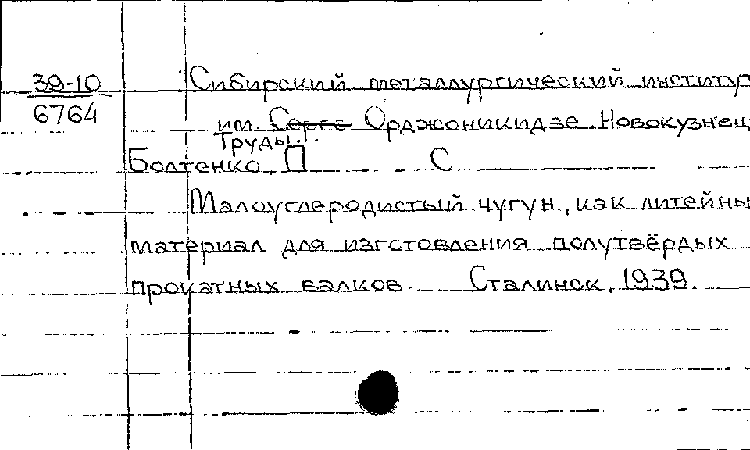 39-10
6764
Сибирский металлургический институт
им. Серго Орджоникидзе. Новокузнец
Труды...
Болтенко, П С
Малоуглеродистый чугун, как литейны
материал для изготовления полутвёрдых
прокатных валков. Сталинск, 1939.